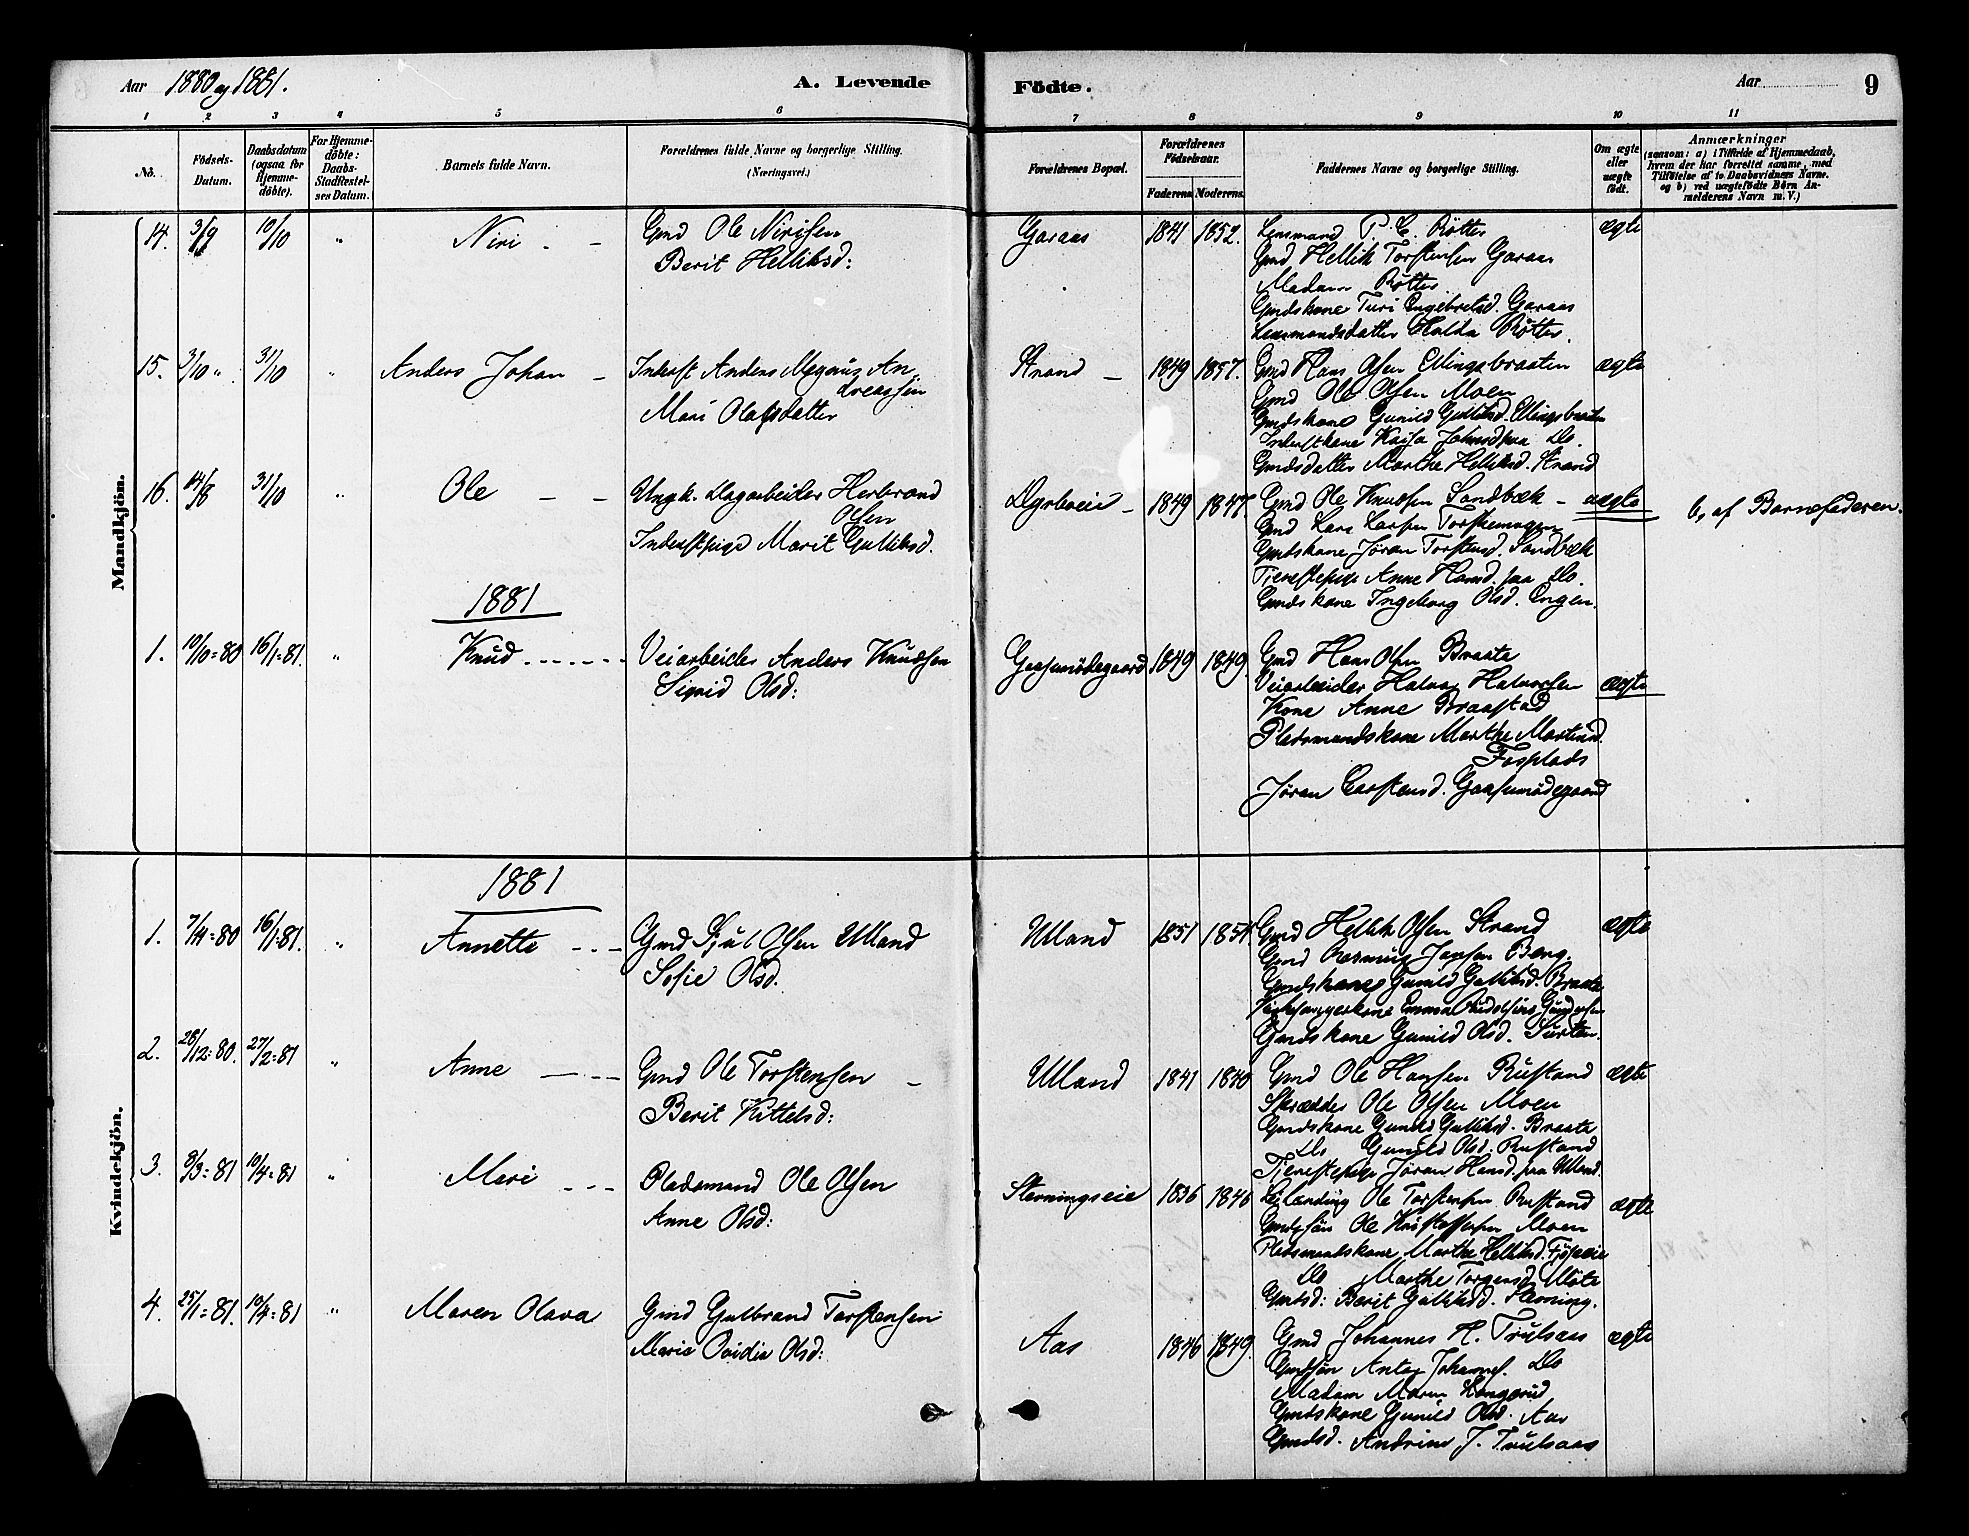 Aar 1880 og 1881.
A. Levende
Födte.
Aar
9
1 2 3 4 5 6 7 8 9 10 11
No.
Födsels-Datum.
Daabsdatum (ogsaa for Hjemme-döbte).
For Hjemme-döbte: Daabs-Stadfestel-ses Datum.
Barnets fulde Navn.
Forældrenes fulde Navne og borgerlige Stilling.
(Næringsvei.)
Forældrenes Bopæl.
Forældrenes Födselsaar.
Faderens Moderens.
Faddernes Navne og borgerlige Stilling.
Om ægte eller uægte födt.
Anmærkninger
(saasom: a) i Tilfælde af Hjemmedaab,
hvem der har forrettet samme, med
Tilföielse af to Daabsvidners Navne.
og b) ved uægtefödte Börn An-
melderens Navn m. V.)
Mandkjön.
14. 3/9 10/10 " Niri - - Gmd Ole Nirisen
Berit Helliksd:
Garaas 1841 1852.
Lensmand P. C. Röttes
Gmd Hellik Torstensen Garaas
Madam Röttes
Gmdskone Turi Engebretsd. Garaas
Lensmandsdatter Hulda Röttes.
ægte
15. 3/10 " 31/10 " Anders Johan - Inderst Anders Magnus An-
dreassen
Mari Olafsdatter
Strand - 1849 1857.
Gmd Hans Olsen Ellingsbraaten
Gmd Ole Olsen Moen
Gmdskone Gunild Gulliksd. Ellingsbraaten
Inderstkone Kajsa Johnsd paa Do.
Gmdsdatter Marthe Helliksd. Strand
ægte
16. 14/8 31/10 " Ole - - Ungk. Dagarbeider Herbrand
Olsen
Inderstpige Marit Gulliksd.
Dyrboeie - 1849 1847.
Gmd Ole Knudsen Sandbæk -
Gmd Lars Larsen Torstenmogen
Gmdskone Jøran Torstensd. Sandbæk
Tjenestepige Anne Hansd. paa Do.
Gmdskone Ingeborg Olsd. Engen.
uægte
b, af Barnefaderen.
1881
1. 10/10=80 16/1=81. " Knud - - - Veiarbeider Anders Knudsen
Sigrid Olsd:
Gaasmödegaard 1849 1849.
Gmd Hans Olsen Braate
Veiarbeider Halvor Halvorsen
Kone Anne Braastad
Pladsmandskone Marthe Martinsd.
Fosplads
Jøran Carstensd. Gaasmödegaard
ægte
Kvindekjön.
1881
1. 7/4=80 16/1=81. " Annette - - - Gmd Sjul Olsen Ulland
Sofie Olsd.
Ulland 1851 1851
Gmd Hellik Olsen Strand
Gmd Rasmus Jensen Berg.
Gmdskone Gunild Gulliksd. Braate
Kirkesangerkone Emma Rudolfine Gundersen
Gmdskone Gunild Olsd. Surten.
ægte
2. 28/12=80. 27/2=81 " Anne - - - Gmd Ole Torstensen -
Berit Kittelsd:
Ulland 1841 1840
Gmd Ole Hansen Rustand
Skrædder Ole Olsen Moen
Gmdskone Gunild Gulliksd. Braate
Do Gunild Olsd. Rustand
Tjenestepige Jøran Hansd. paa Ulland.
ægte
3. 8/3=81 10/4=81 " Mari - - - Pladsmand Ole Olsen
Anne Olsd:
Stenningseie 1836 1846
Ole Torstensen Rustand
Gmdsøn Ole Kristoffersen Moen
Pladsmandskone Marthe Helliksd.
Do Marthe Torgersd.
Gmdsd: Berit Gulliksd.
ægte
4. 25/1=81. 10/4=81 " Maren Olava Gmd Gulbrand Torstensen
Marie Ovidia Olsd:
Aas 1846 1849.
Gmd Johannes H. Trulsaas
Gmdsøn Anton Johannes. Do
Madam Maren Langerud
Gmdskone Gunild Olsd. Aas
Gmdsd. Andrine J. Trulsaas
ægte